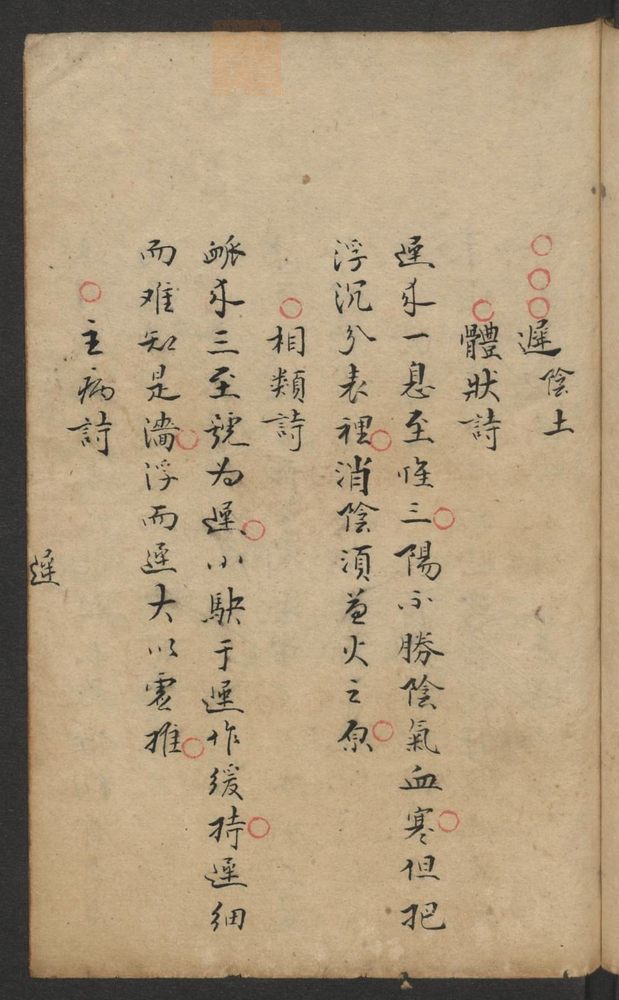 遲陰土
體狀詩
遲来一息至惟三陽不勝陰氣血寒但把
浮沉分表裡消陰須益火之原
相類詩
脈来三至號为遲小駃于遲作緩持遲細
而难知是濇浮而遲大以虛推
主病詩
遲